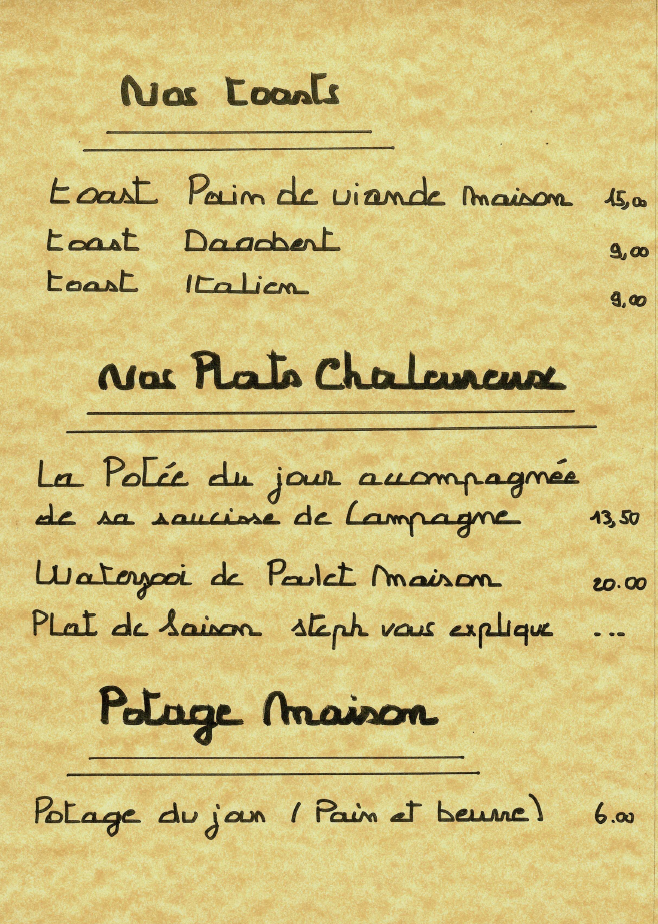 Nos toasts
toast Pain de viande maison 15,00
toast Dagobert 9,00
toast Italien 9,00
Nos Plats Chaleureux
La Potée du jour accompagnée
de sa saucisse de Campagne 13,50
Waterzooi de Poulet Maison 20.00
Plat de Saison steph vous explique ...
Potage Maison
Potage du jour ( Pain et beurre) 6.00